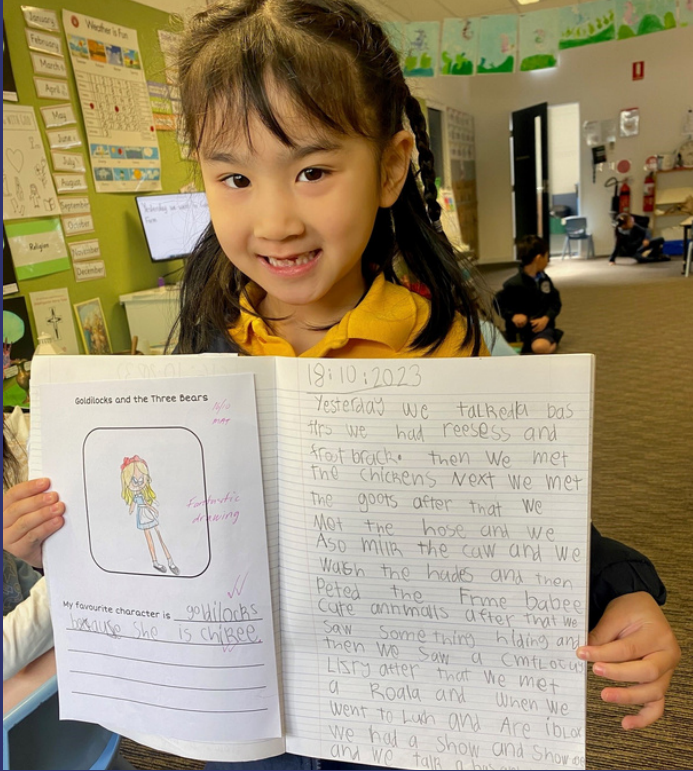 January
February
March
April
May
June
July
August
September
October
November
December
Weather is Fun
Religion
Yesterday we
Goldilocks and the Three Bears
Fantastic
drawing
My favourite character is goldilocks
because she is chikee
18:10:2023
Yesterday we talked a bas
we had reesess and
froot brack. then we met
the chickens Next we met
the goots after that we
Met the hose and we
Aso milk the caw and we
the and then
Peted the Frme babee
cute annmalls after that we
saw something hiding and
then we saw a
Lisry after that we met
a Roala and when we
went to Luh and Are
we had a show and show
and we talk a